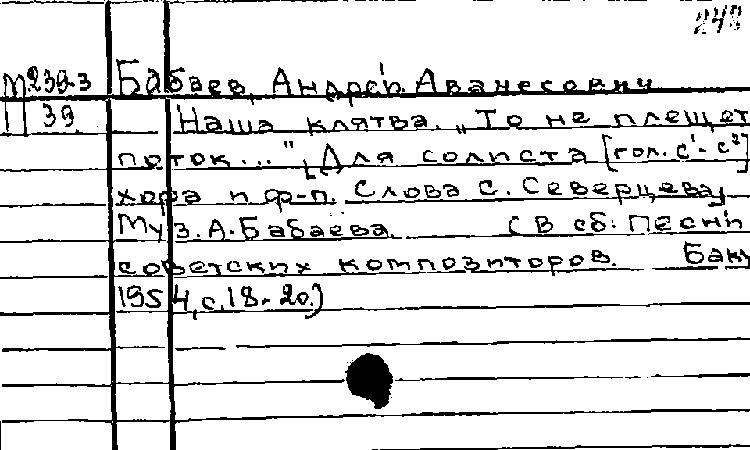 248
М 239-3 Бабаев, Андрей Аванесович
39 Наша клятва. „То не плещет
поток..." [Для солиста [гол. с¹-с²]
хора и ф-п. Слова С. Северцева,
Муз. А. Бабаева. (В сб: Песни
советских композиторов. Баку
1954, с. 18-20.)